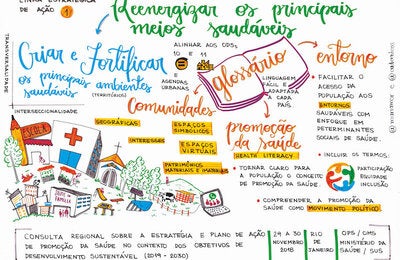 LINHA ESTRATÉGICA
DE AÇÃO 1
Reenergizar os principais
meios saudáveis
TRANSVERSALIDADE
Criar e Fortificar
os principais ambientes
saudáveis (TERRITÓRIOS)
ALINHAR AOS ODS,
10 e 11
E
AGENDAS
URBANAS
INTERSECCIONALIDADE
Comunidades
GEOGRÁFICAS
INTERESSES
ESPAÇOS
SIMBÓLICOS
ESPAÇOS
VIRTUAIS
PATRIMÔNIOS
MATERIAIS E IMATERIAIS
ESCOLA
glossário
LINGUAGEM
FÁCIL E
ADAPTADA
A CADA
PAÍS.
entorno
• FACILITAR O
ACESSO DA
POPULAÇÃO AOS
ENTORNOS
SAUDÁVEIS COM
ENFOQUE EM
DETERMINANTES
SOCIAIS DE SAÚDE.
promoção
da saúde
HEALTH LITERACY
• TORNAR CLARO PARA
A POPULAÇÃO O CONCEITO
DE PROMOÇÃO DA SAÚDE
• INCLUIR OS TERMOS:
PARTICIPAÇÃO
EQUIDADE
INCLUSÃO
• COMPREENDER A PROMOÇÃO
DA SAÚDE COMO
MOVIMENTO POLÍTICO.
CONSULTA REGIONAL SOBRE A ESTRATÉGIA E PLANO DE AÇÃO
DE PROMOÇÃO DA SAÚDE NO CONTEXTO DOS OBJETIVOS DE
DESENVOLVIMENTO SUSTENTÁVEL (2019 - 2030)
29 A 30
NOVEMBRO
2018
RIO DE
JANEIRO
OPS / OMS
MINISTÉRIO DA
SAÚDE / SUS